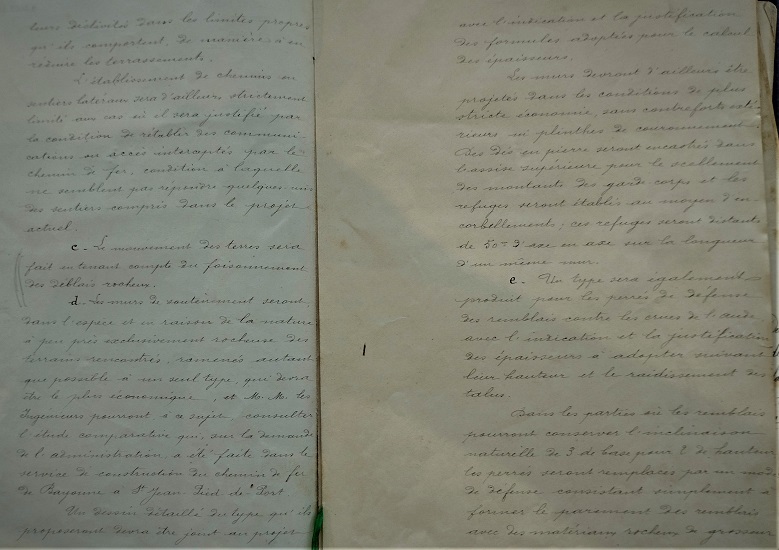 leurs déclivités dans les limites propres
qu'ils comportent, de manière à en
réduire les terrassements.
L'établissement de chemins ou
sentiers latéraux sera d'ailleurs strictement
limité aux cas où il sera justifié par
la condition de rétablir des communi-
cations ou accès interceptés par le
chemin de fer, condition à laquelle
ne semblent pas répondre quelques uns
des sentiers compris dans le projet
actuel.
c. Le mouvement des terres sera
fait en tenant compte du foisonnement
des déblais rocheux.
d. Les murs de soutènement seront
dans l'espèce et en raison de la nature
à peu près exclusivement rocheuse des
terrains rencontrés, ramenés autant
que possible à un seul type, qui devra
être le plus économique, et M.M. les
Ingénieurs pourront à ce sujet, consulter
l'étude comparative qui, sur la demande
de l'administration, a été faite dans le
service de construction du chemin de fer
de Bayonne à St Jean Pied de Port
Un dessin détaillé du type qu'ils
proposeront devra être joint au projet
avec l'indication et la justification
des formules adoptées pour le calcul
des épaisseurs.
Les murs devront d'ailleurs être
projetés dans les conditions de plus
stricte économie, sans contreforts
ni plinthes de couronnement.
Des dés en pierre seront encastrés dans
l'assise supérieure pour le scellement
des montants des garde corps et les
refuges seront établis au moyen d'en-
corbellements; ces refuges seront distants
de 50 d'axe en axe sur la longueur
d'un même mur.
e. Un type sera également
produit pour les perrés de défense
des remblais contre les crues de l'Aude
avec l'indication et la justification
des épaisseurs à adopter suivant
leur hauteur et le raidissement des
talus.
Dans les parties où les remblais
pourront conserver l'inclinaison
naturelle de 3 de base pour 2 de hauteur
les perrés seront remplacés par un mode
de défense consistant simplement à
former le parement des remblais
avec des matériaux rocheux de grosseur